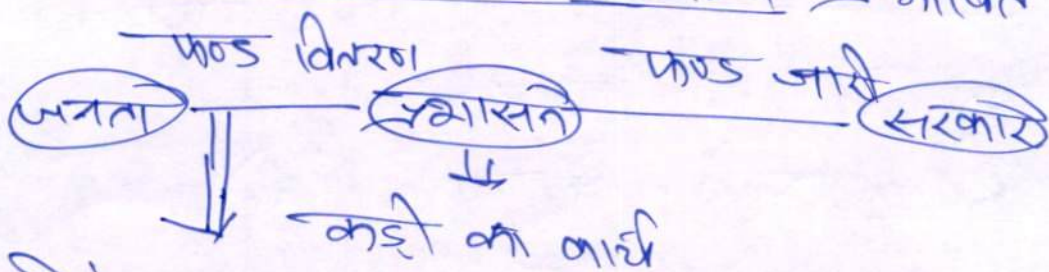 फण्ड वितरण फण्ड जारी
जनता प्रशासन सरकार
कड़ी का कार्य